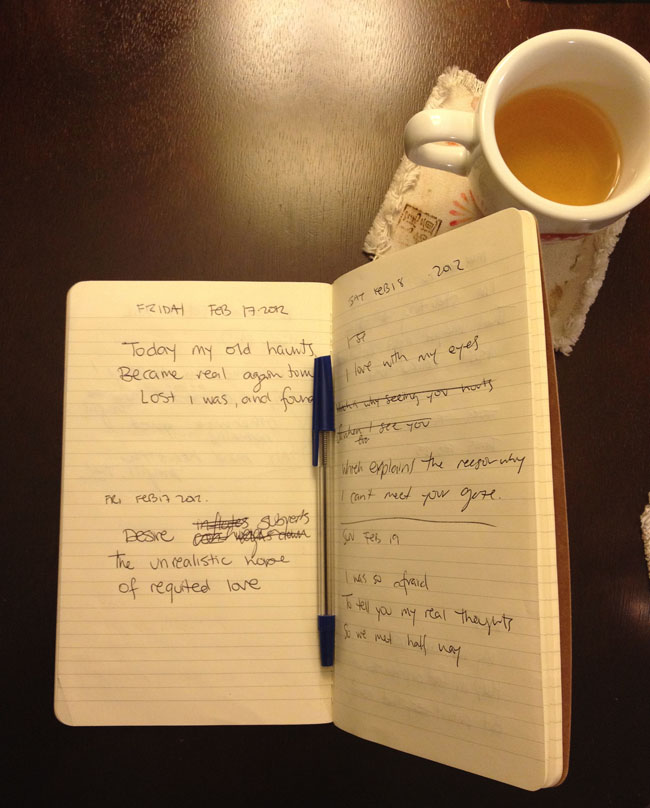 FRIDAY FEB 17 2012
Today my old haunts
Became real again to
Lost i was, and found
FRI FEB 17 2012.
inflates subverts
Desire weighs down
the unrealistic hope
of requited love
SAT FEB 18 2012
I love with my eyes
which is why seeing you hurts
I see you
Which explains the reason why
I can't meet your gaze.
SUN FEB 19
I was so afraid
To tell you my real thoughts
So we met half way